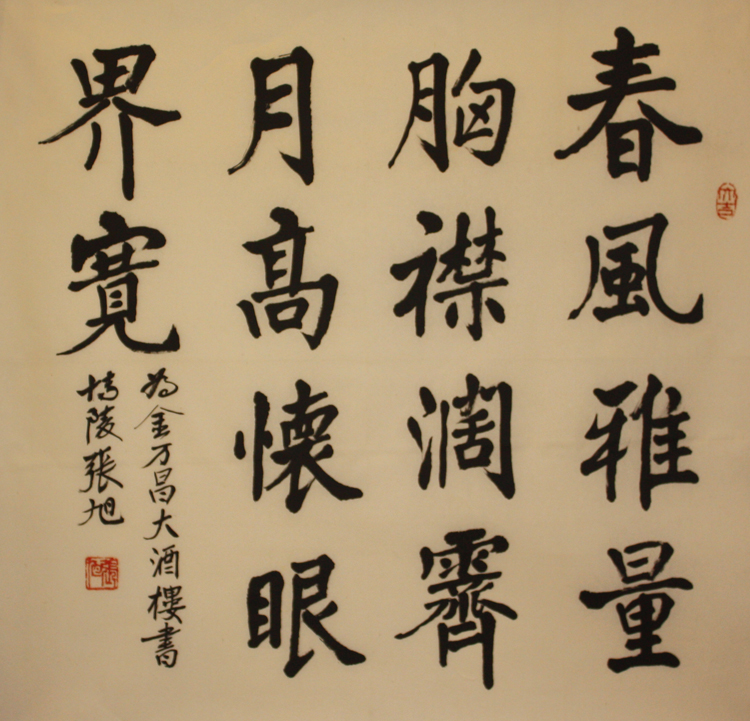 春風雅量
胸襟濶霽
月高懷眼
界寬
為金万昌大酒樓書
博陵張旭